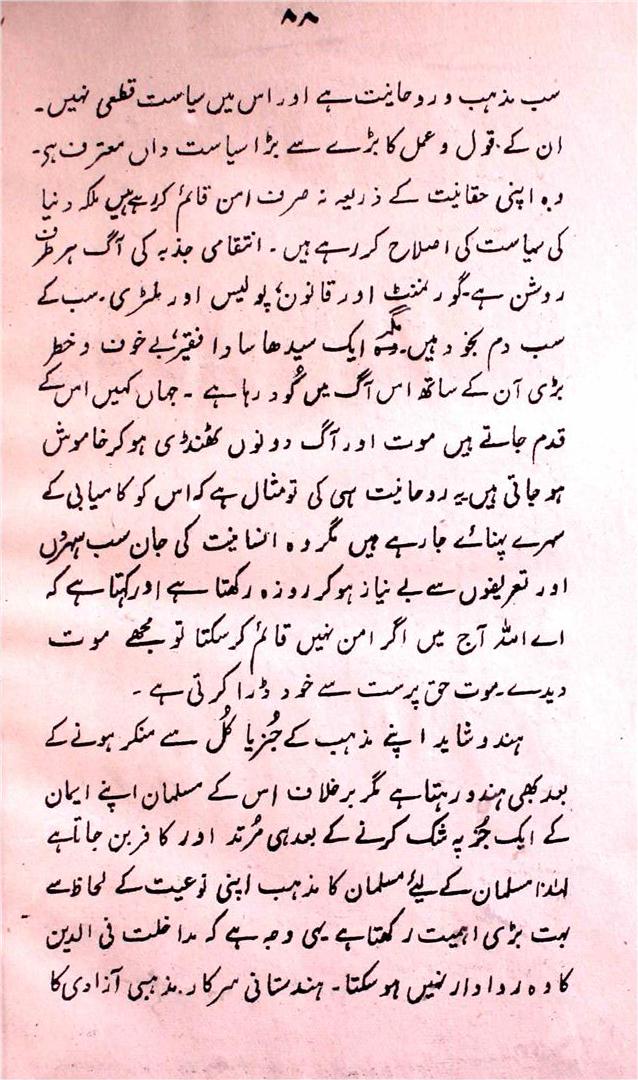 ۸۸
سب مذہب و روحانیت ہے اور اس میں سیاست قطعی نہیں۔
ان کے قول و عمل کا بڑے سے بڑا سیاست داں معترف ہی۔
وہ اپنی حقانیت کے ذریعہ نہ صرف امن قائم کر رہے ہیں بلکہ دنیا
کی سیاست کی اصلاح کر رہے ہیں۔ انتقامی جذبہ کی آگ ہر طرف
روشن ہے۔ گورنمنٹ اور قانون، پولیس اور ملٹری۔ سب کے
سب دم بخود ہیں۔ مگر وہ ایک سیدھا سادا فقیر، بے خوف و خطر
بڑی آن کے ساتھ اس آگ میں کُود رہا ہے۔ جہاں کہیں اس کے
قدم جاتے ہیں موت اور آگ دونوں ٹھنڈی ہو کر خاموش
ہو جاتی ہیں یہ روحانیت ہی کی تو مثال ہے کہ اس کو کامیابی کے
سہرے پہنائے جا رہے ہیں مگر وہ انسانیت کی جان سب سہروں
اور تعریفوں سے بے نیاز ہو کر روزہ رکھتا ہے اور کہتا ہے کہ
اے اللہ آج میں اگر امن نہیں قائم کر سکتا تو مجھے موت
دیدے۔ موت حق پرست سے خود ڈرا کرتی ہے۔
ہندو شاید اپنے مذہب کے جُز یا کُل سے منکر ہونے کے
بعد بھی ہندو رہتا ہے مگر برخلاف اس کے مسلمان اپنے ایمان
کے ایک جُز پہ شک کرنے کے بعد ہی مُرتد اور کافر بن جاتا ہے
لہٰذا مسلمان کے لیے مسلمان کا مذہب اپنی نوعیت کے لحاظ سے
بہت بڑی اہمیت رکھتا ہے یہی وجہ ہے کہ مداخلت فی الدین
کا وہ روادار نہیں ہو سکتا۔ ہندستانی سرکار۔ مذہبی آزادی کا